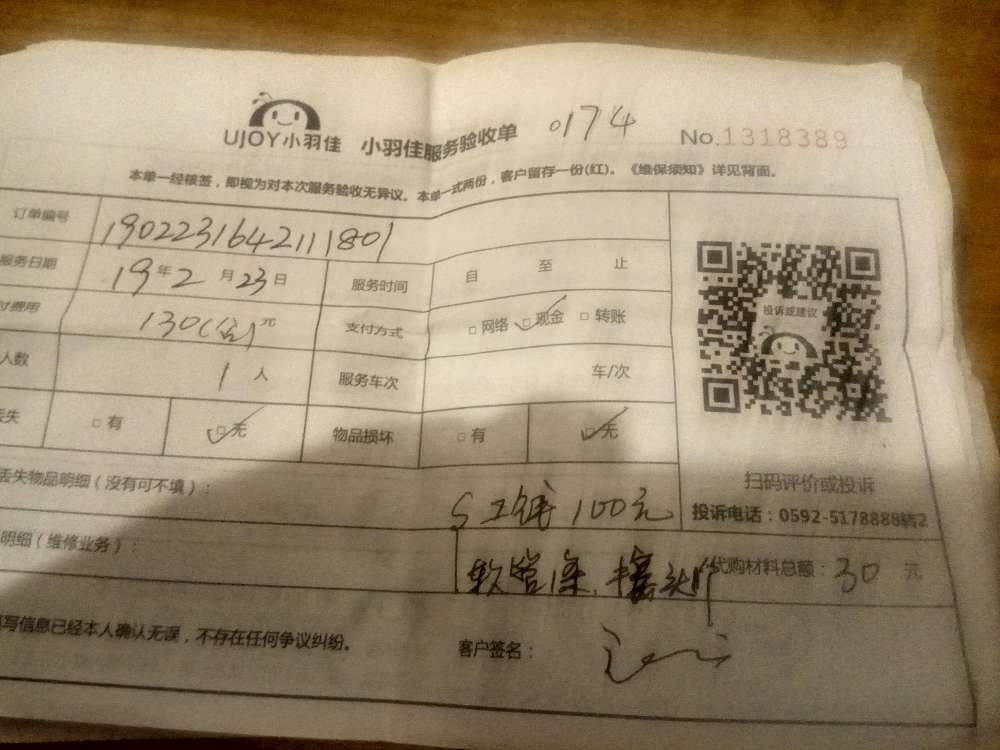 UJOY小羽佳 小羽佳服务验收单 0174 No.1318389
本单一经核签，即视为对本次服务验收无异议。本单一式两份，客户留存一份(红)。《维保须知》详见背面。
订单编号 1902231642111801
服务日期 19年2月23日 服务时间 自 至 止
付费用 130(台)元 支付方式 □网络 □现金 □转账
人数 1人 服务车次 车/次
丢失 □有 □无 物品损坏 □有 □无
投诉或建议
丢失物品明细（没有可不填）：
扫码评价或投诉
工钱100元
投诉电话：0592-5178888转2
明细（维修业务）：
软管 代购材料总额：30元
写信息已经本人确认无误，不存在任何争议纠纷。 客户签名：